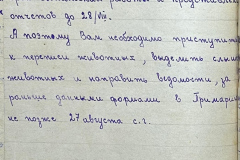 отчетов до 28/VIII.
А поэтому Вам необходимо приступить
к переписи животных, выделить
животных и направить ведомости, за
раньше данными формами в
не позже 27 августа с.г.